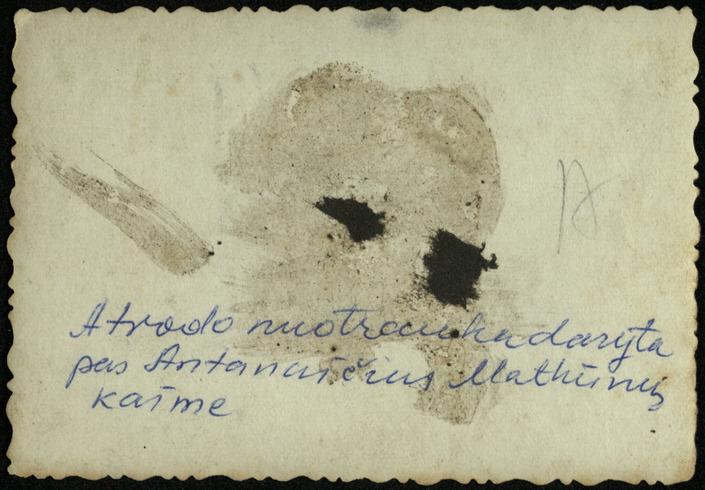 A
Atrodo nuotrauka daryta
pas Antanaičius Matkūnų
kaime